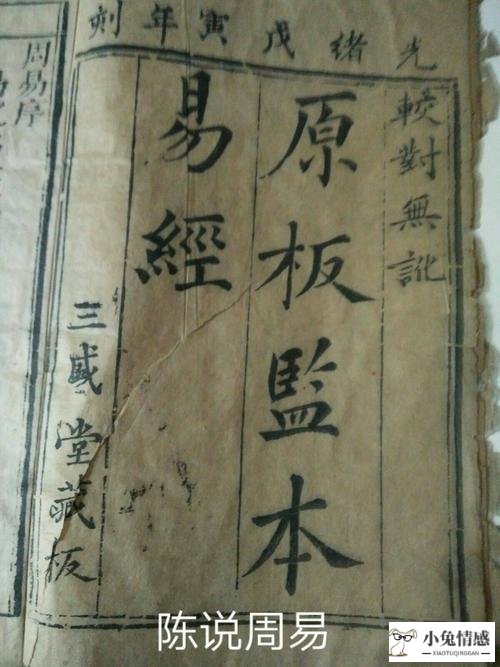 光緒戊寅年刻
較對無訛
原板監本
易經
三盛堂藏板
周易序
陈说周易
小兔情感
XIAOTUQINGGAN